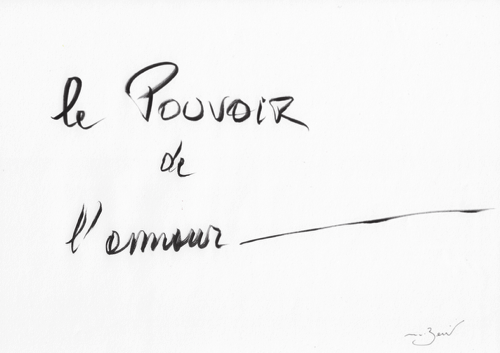 le POUVOIR
de
l'amour